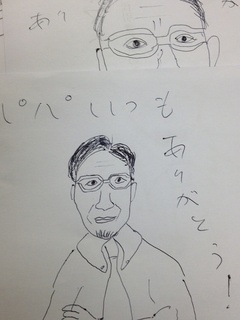 あり
パパいつも
ありがとう!